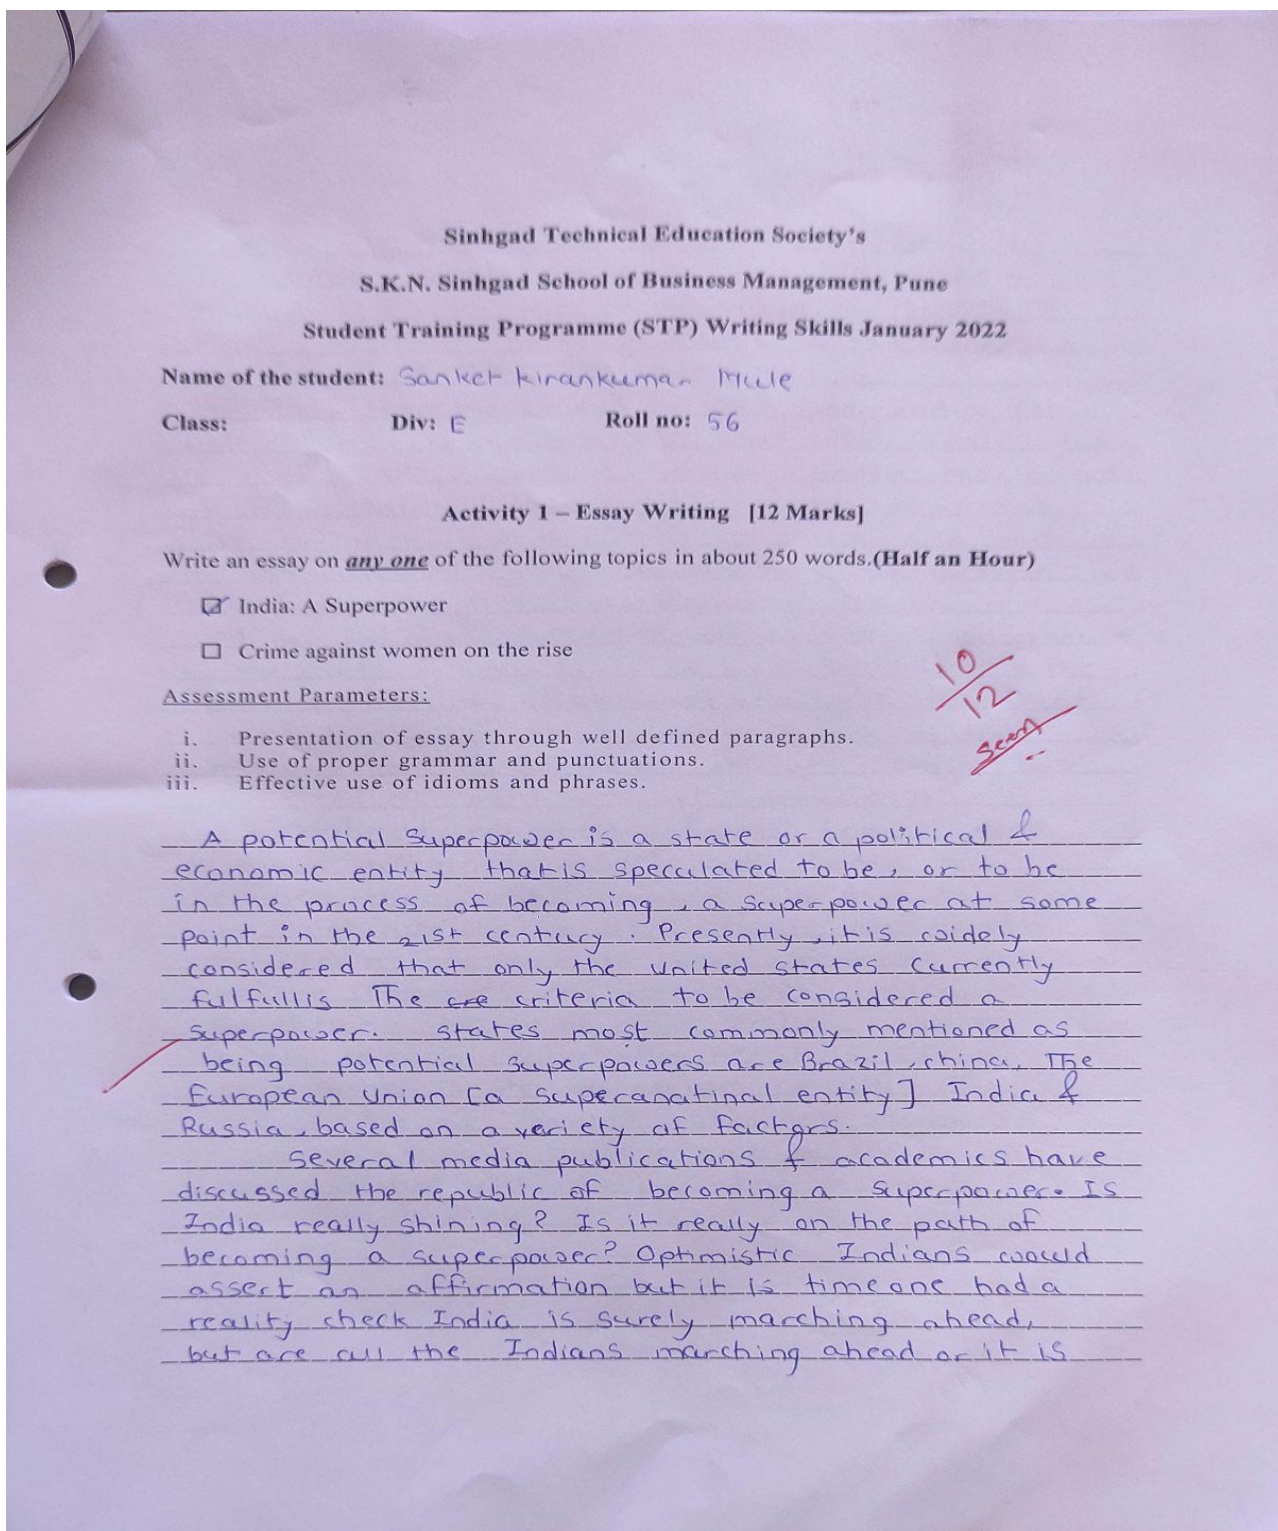 Sinhgad Technical Education Society's
S.K.N. Sinhgad School of Business Management, Pune
Student Training Programme (STP) Writing Skills January 2022
Name of the student: Sanket kirankumar Mule
Class: Div: E Roll no: 56
Activity 1 – Essay Writing [12 Marks]
Write an essay on any one of the following topics in about 250 words.(Half an Hour)
☑ India: A Superpower
☐ Crime against women on the rise
10/12
Seen
Assessment Parameters:
i. Presentation of essay through well defined paragraphs.
ii. Use of proper grammar and punctuations.
iii. Effective use of idioms and phrases.
A potential Superpower is a state or a political &
economic entity that is speculated to be, or to be
in the process of becoming, a superpower at some
point in the 21st century. Presently, it is widely
considered that only the united states currently
fulfullis The cre criteria to be considered a
superpower. states most commonly mentioned as
being potential superpowers are Brazil, china, The
European Union [a superanatinal entity] India &
Russia, based on a variety of factors.
Several media publications & academics have
discussed the republic of becoming a superpower. Is
India really shining? Is it really on the path of
becoming a superpower? Optimistic Indians would
assert an affirmation but it is time one had a
reality check India is surely marching ahead,
but are all the Indians marching ahead or it is